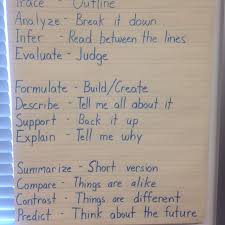 Trace - Outline
Analyze - Break it down
Infer - Read between the lines
Evaluate - Judge
Formulate - Build/Create
Describe - Tell me all about it
Support - Back it up
Explain - Tell me why
Summarize - Short version
Compare - Things are alike
Contrast - Things are different
Predict - Think about the future